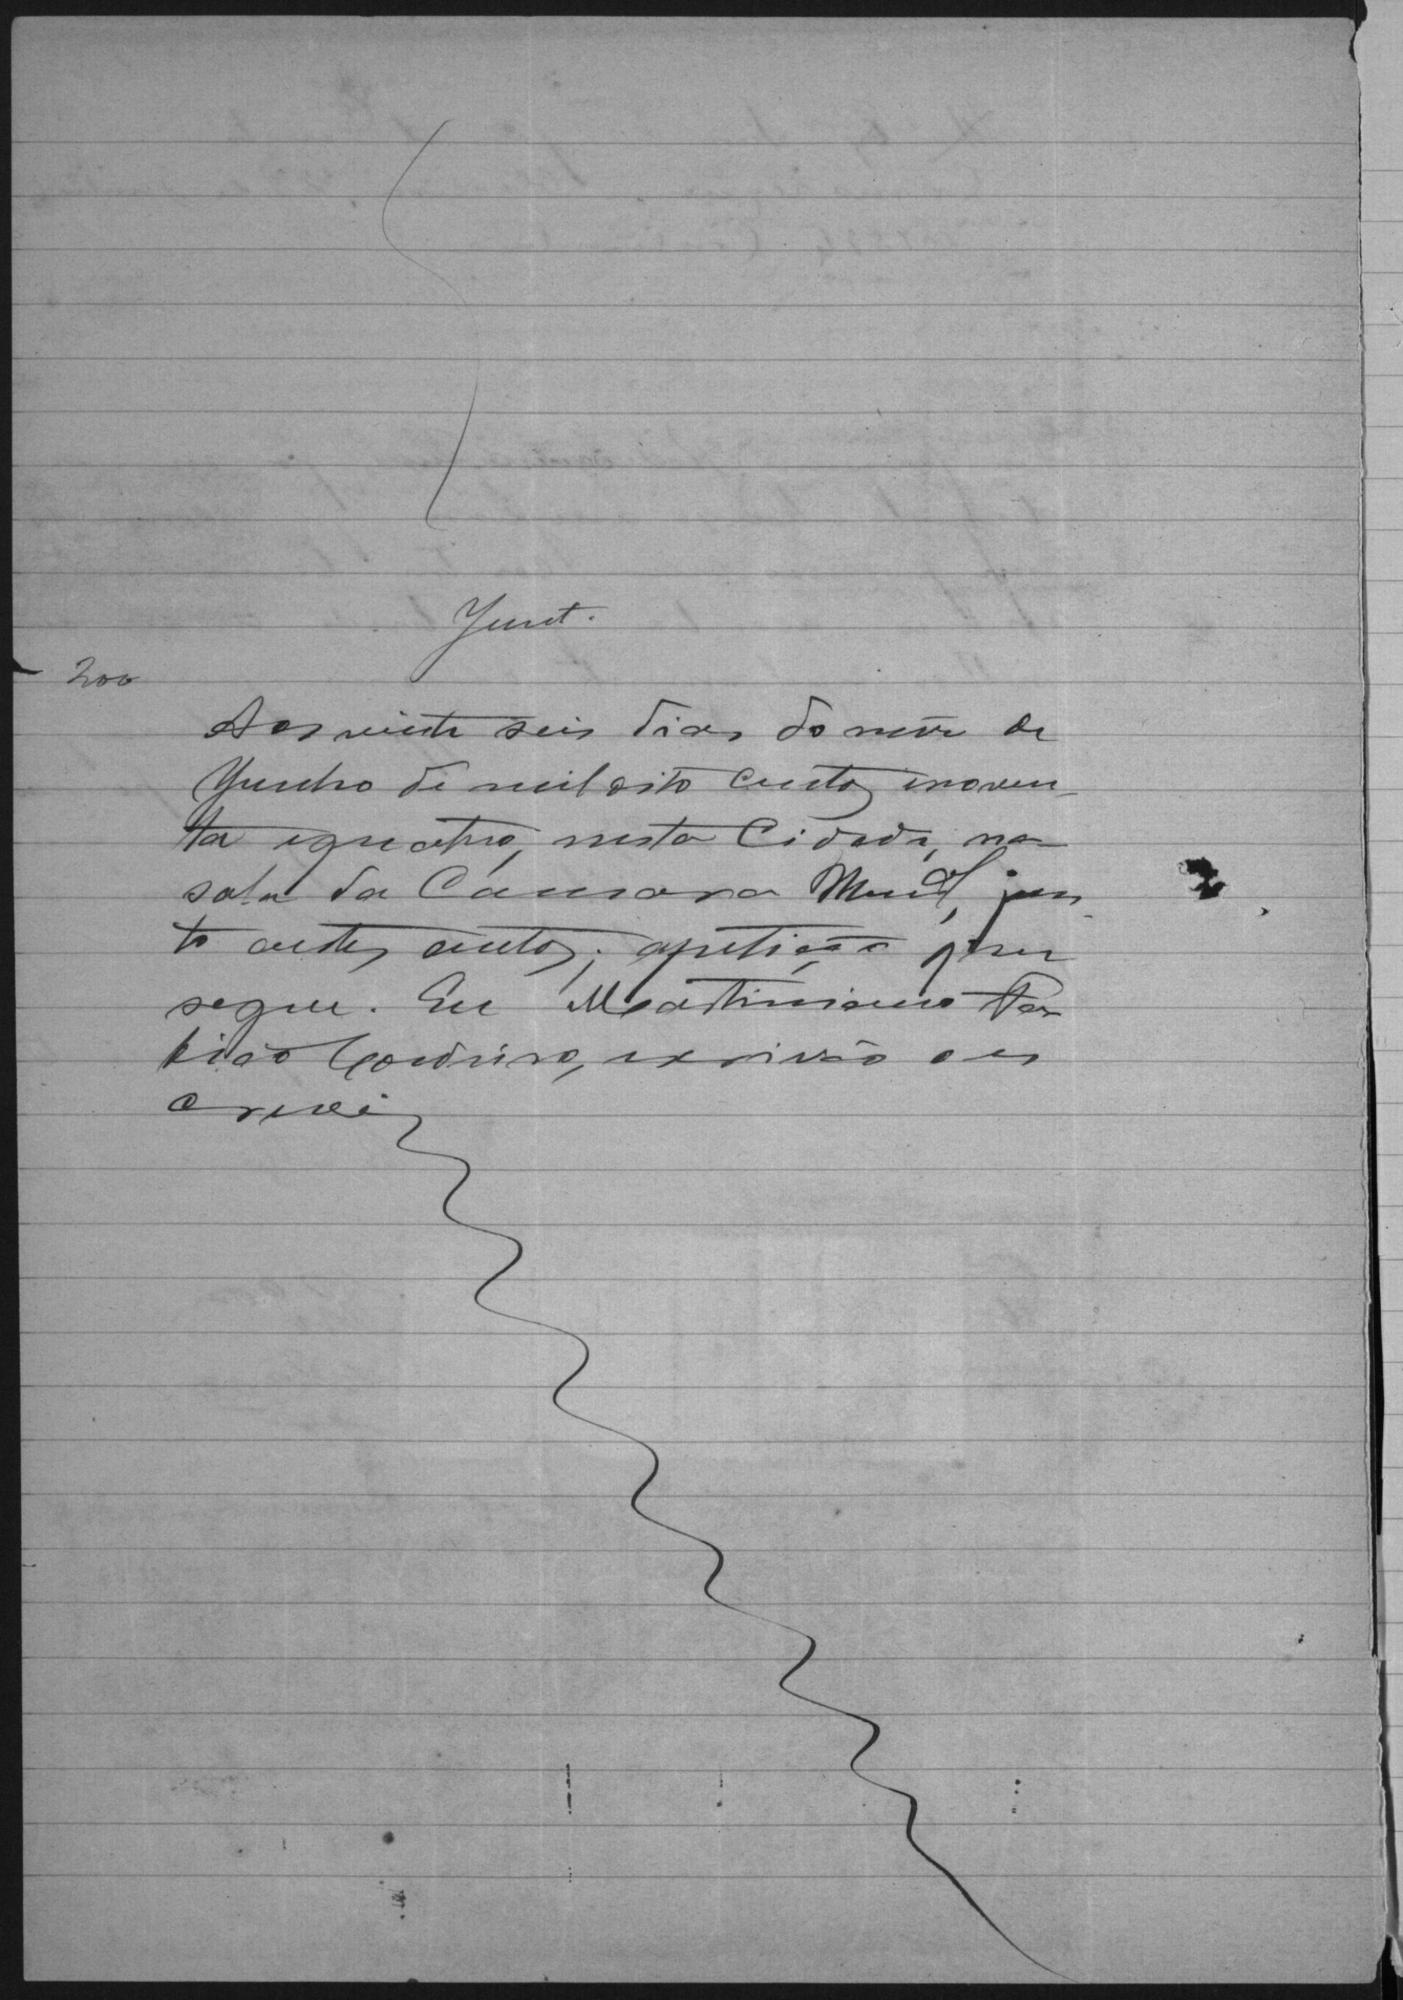 Junt.
200
Aos vinte seis dias do mez de
Junho de mil oito centos, inoven-
ta equatro, nesta Cidade, na
sala da Camara Mun.al, jun-
to aestes autos; apetição que
segue. Eu Martiniano
Cordeiro, escrivão o es
crevi